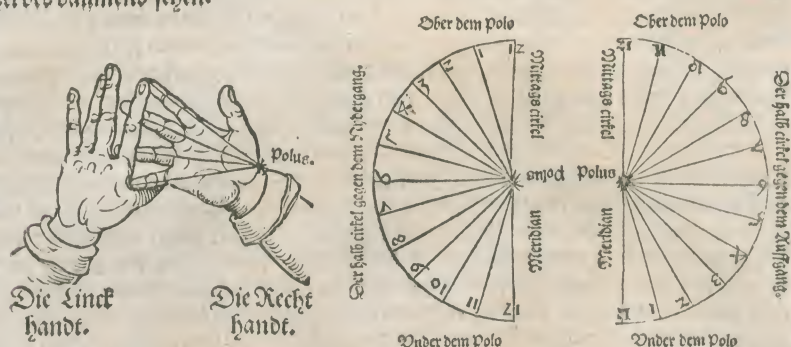 Polus.
Die Linck
handt.
Die Recht
handt.
Ober dem Polo
Der halb cirkel gegen dem Nydergang.
12
1
2
3
4
5
6
7
8
9
10
11
12
Mittags cirkel
Polus
Meridian
Vnder dem Polo
Ober dem Polo
Mittags cirkel
Polus
Meridian
12
11
10
9
8
7
6
5
4
3
2
1
12
Der halb cirkel gegen dem Auffgang.
Vnder dem Polo